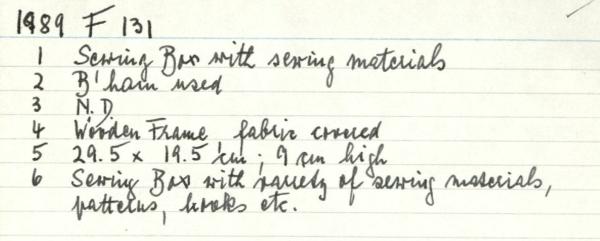 1989 F 131
1 Sewing Box with sewing materials
2 B'ham used
3 N.D.
4 Wooden Frame, fabric covered
5 29.5 x 19.5 cm ; 9 cm high
6 Sewing Box with variety of sewing materials,
patterns, hooks etc.